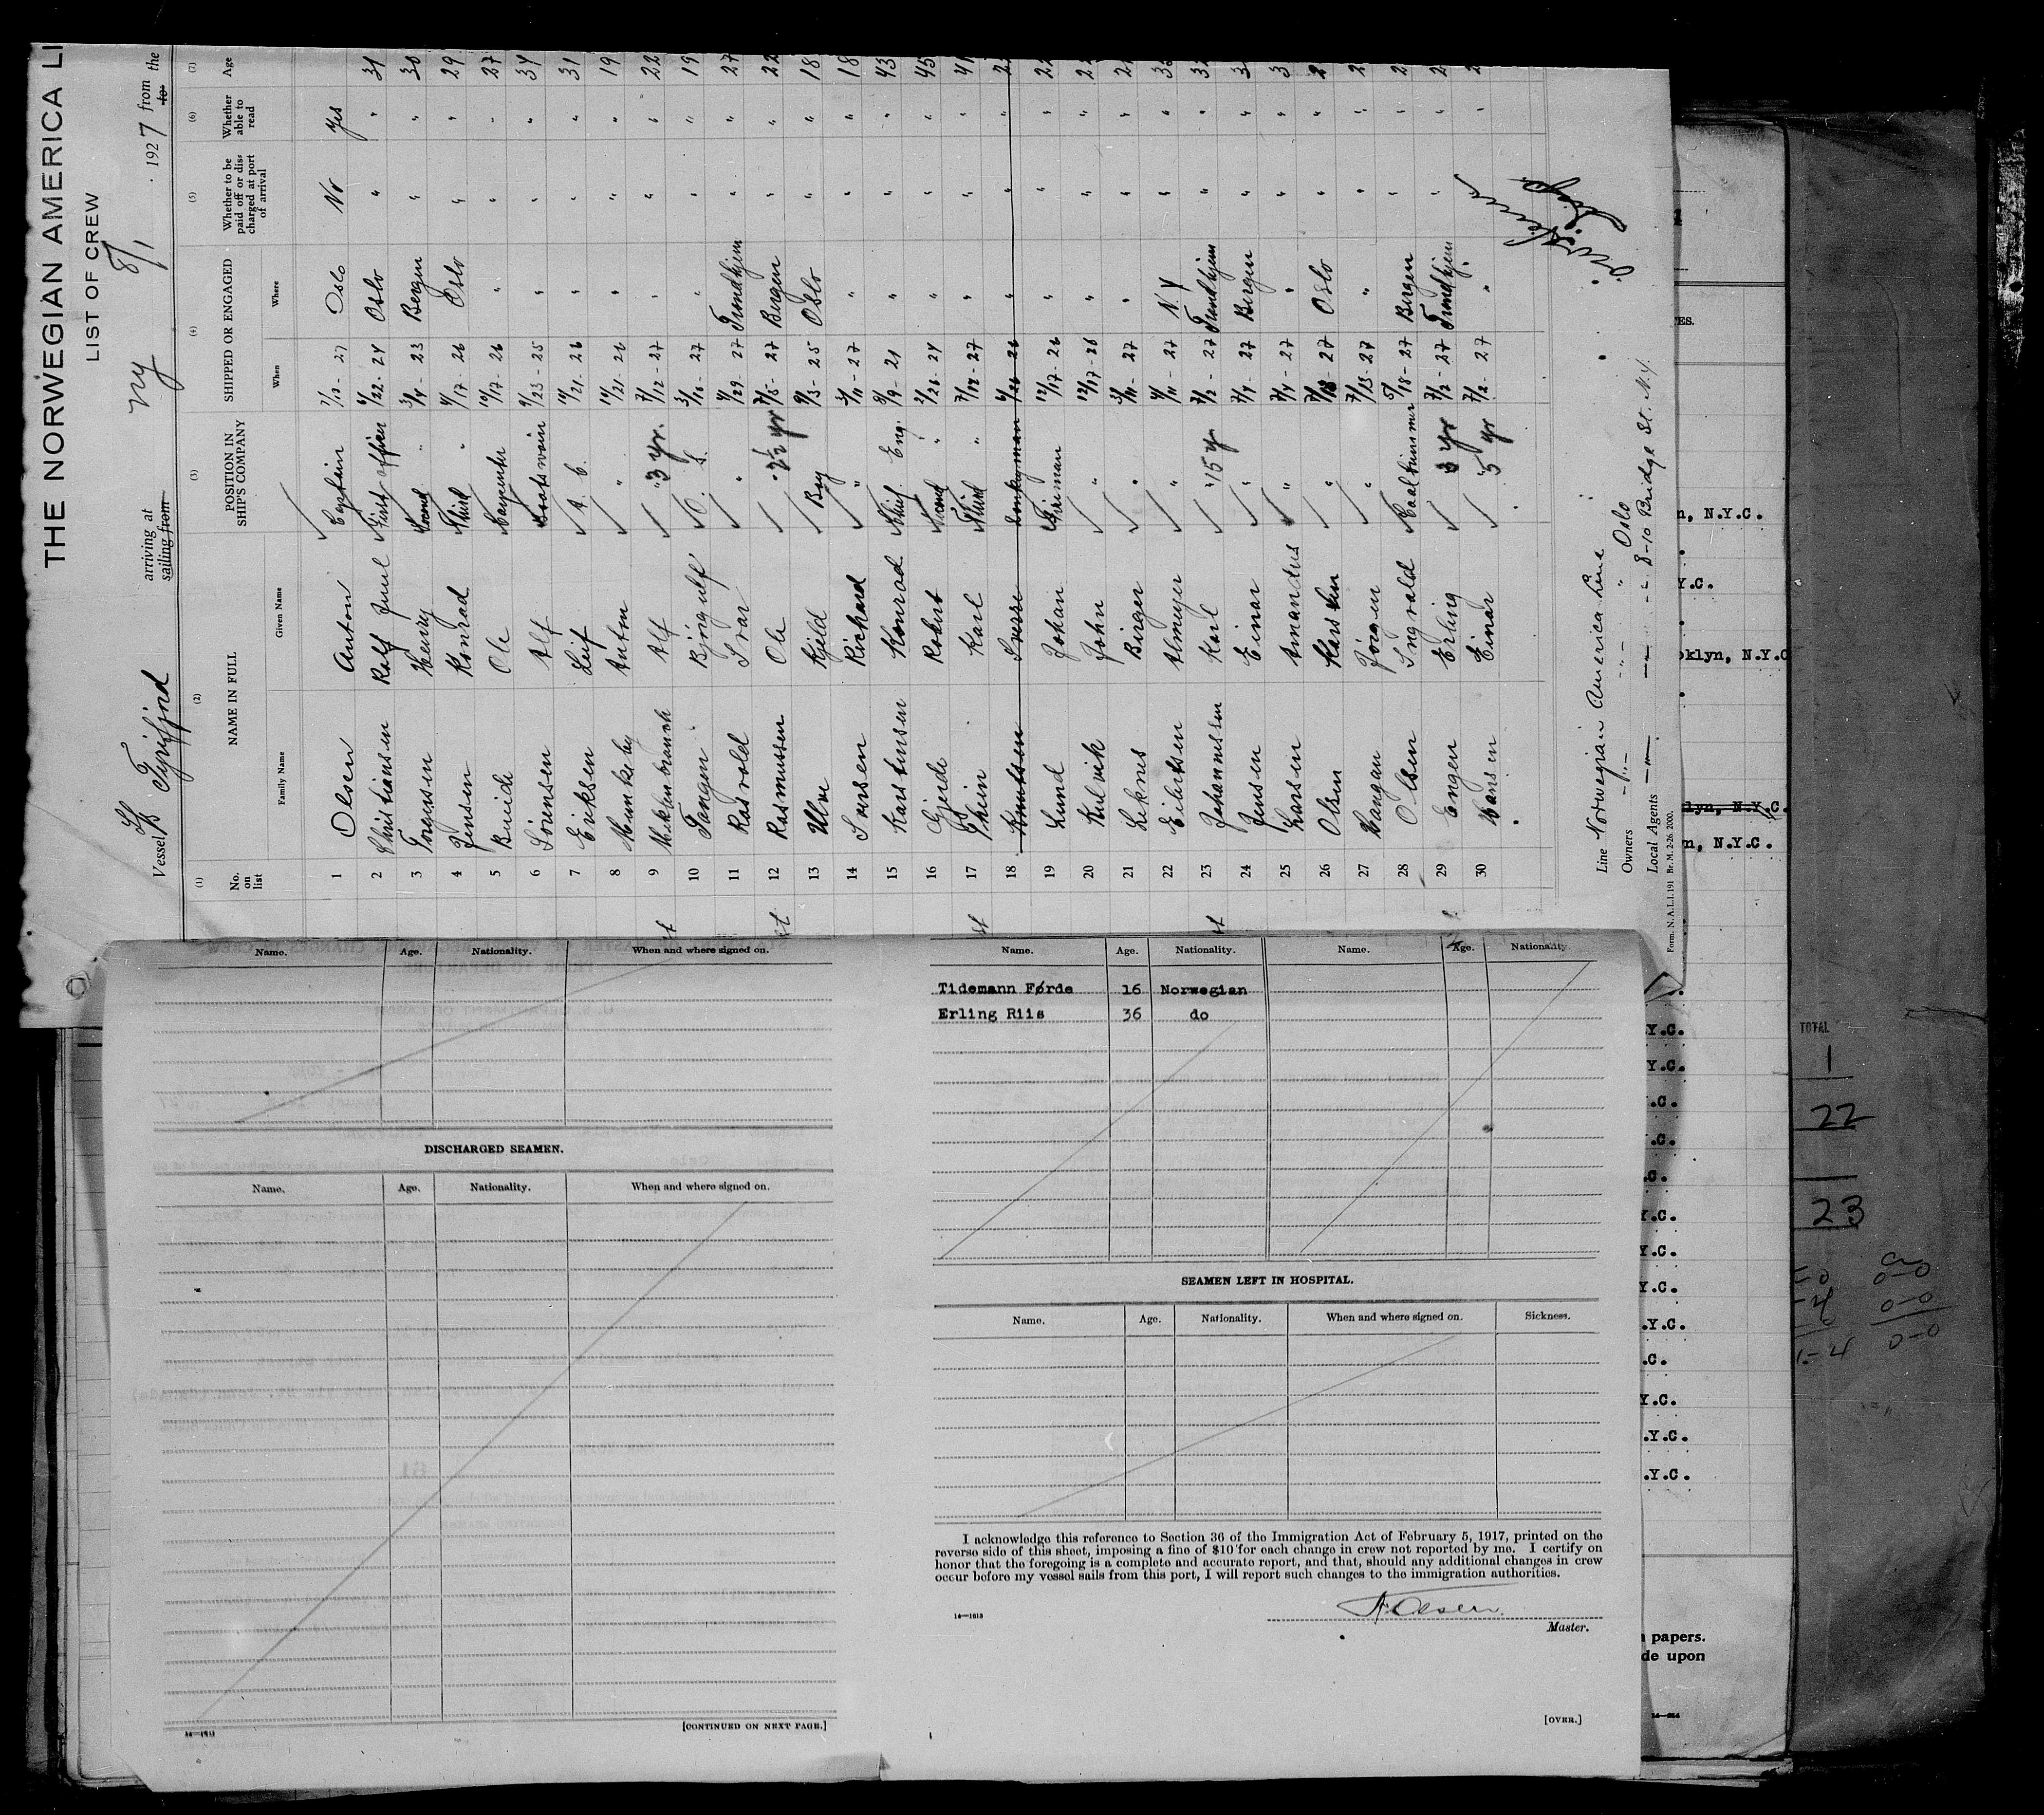 THE NORWEGIAN AMERICA LI
LIST OF CREW
Vessel S/S Tyrifjord arriving at NY 8/1 1927 from the
sailing from to
(1) (2) (3) (4) (5) (6) (7)
No. on list
NAME IN FULL
Family Name Given Name
POSITION IN SHIP'S COMPANY
SHIPPED OR ENGAGED
When Where
Whether to be paid off or discharged at port of arrival
Whether able to read
Age
1 Olsen Anton Captain Oslo No Yes
2 Christiansen Rolf Juul First officer 6/22-24 Oslo " " 31
3 Henry Second " 3/4-23 Bergen " " 30
4 Jensen Konrad Third " 4/17-26 Oslo " " 29
5 Ole Carpenter 10/17-26 " " " 27
6 Sörensen Alf Boatswain 9/23-25 " " " 34
7 Eriksen Leif A. B. 10/21-26 " " " 31
8 Munkeby Anton " 10/21-26 " " " 19
9 Alf " 3 yr. 7/12-27 " " " 22
10 Tangen Bjørgulf O. S. 3/10-27 " " " 19
11 Rasvold Ivar " 4/29-27 Trondhjem " " 27
12 Rasmussen Ole " 2½ yr 7/5-27 Bergen " " 22
13 Ulve Kjeld Boy 9/3-25 Oslo " " 18
14 Iversen Richard " 3/11-27 " " " 18
15 Karstensen Konrad Chief Eng. 8/9-21 " " " 43
16 Gjerde Robert Second " 2/26-24 " " " 45
17 Thein Karl Third " 7/14-27 " " " 41
18 Knutsen Sverre Donkeyman 6/26-26 " " "
19 Lund Johan Fireman 12/17-26 " " "
20 Kulvik John " 12/17-26 " " "
21 Leknes Birger " 3/11-27 " " "
22 Eilertsen Almeyer " 4/11-27 N Y " "
23 Johannessen Karl " 15 yr 7/2-27 Trondhjem " "
24 Jensen Einar " 7/4-27 Bergen " "
25 Larsen Amandus " 7/4-27 " " "
26 Olsen Karsten " 7/13-27 Oslo " "
27 Haugan Jörgen " 7/13-27 " " "
28 Olsen Ingvald Coaltrimmer 5/18-27 Bergen " "
29 Engen Erling " 3 yr 7/2-27 Trondhjem " "
30 Hansen Einar " 5 yr 7/2-27 " " "
Line Norwegian America Line
Owners " " " Oslo
Local Agents " " " 8-10 Bridge St. N.Y.
Form. N.A.L.I. 191 Br. M. 2-26. 2000.
Name. Age. Nationality. When and where signed on.
DISCHARGED SEAMEN.
Name. Age. Nationality. When and where signed on.
14—1613
[CONTINUED ON NEXT PAGE.]
Name. Age. Nationality. Name. Age. Nationality
Tidemann Førde 16 Norwegian
Erling Riis 36 do
SEAMEN LEFT IN HOSPITAL.
Name. Age. Nationality. When and where signed on. Sickness.
I acknowledge this reference to Section 36 of the Immigration Act of February 5, 1917, printed on the
reverse side of this sheet, imposing a fine of $10 for each change in crew not reported by me. I certify on
honor that the foregoing is a complete and accurate report, and that, should any additional changes in crew
occur before my vessel sails from this port, I will report such changes to the immigration authorities.
14—1613
A. Olsen
Master.
[OVER.]
ES.
n, N.Y.C.
Y.C.
oklyn, N.Y.C
lyn, N.Y.C.
n, N.Y.C.
Y.C.
Y.C.
.C.
.C.
.C.
Y.C.
Y.C.
Y.C.
.Y.C.
.C.
Y.C.
.Y.C.
.Y.C.
papers.
de upon
TOTAL
1
22
23
0-0
0-0
0-0